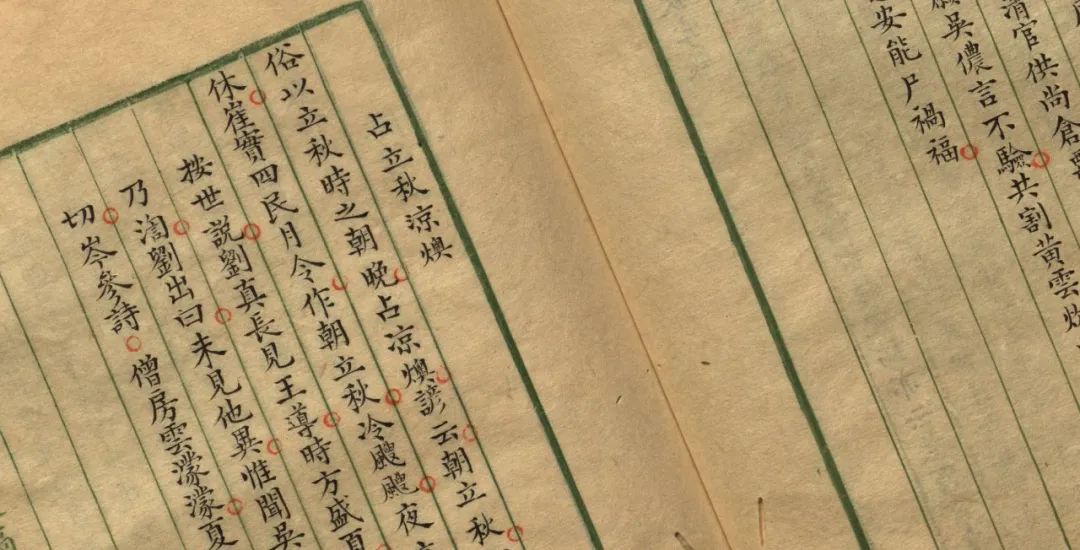 清官供尚倉
吳儂言不驗共割黃雲
安能尸禍福
占立秋涼燠
俗以立秋時之朝晚占凉燠諺云朝立秋
休崔實四民月令作朝立秋冷颼颼夜立
按世說劉真長見王導時方盛夏
乃淘劉出曰未見他異惟聞吳
切岑參詩僧房雲濛濛夏